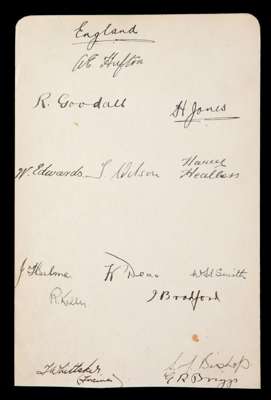 England
AE Hufton
R. Goodall
H Jones
W. Edwards
T Wilson
Heathers
J Hulme
W Dean
W Hd Smith
R. Kelly
J Bradford
T Whittaker
(Trainer)
Bishop
G R Briggs